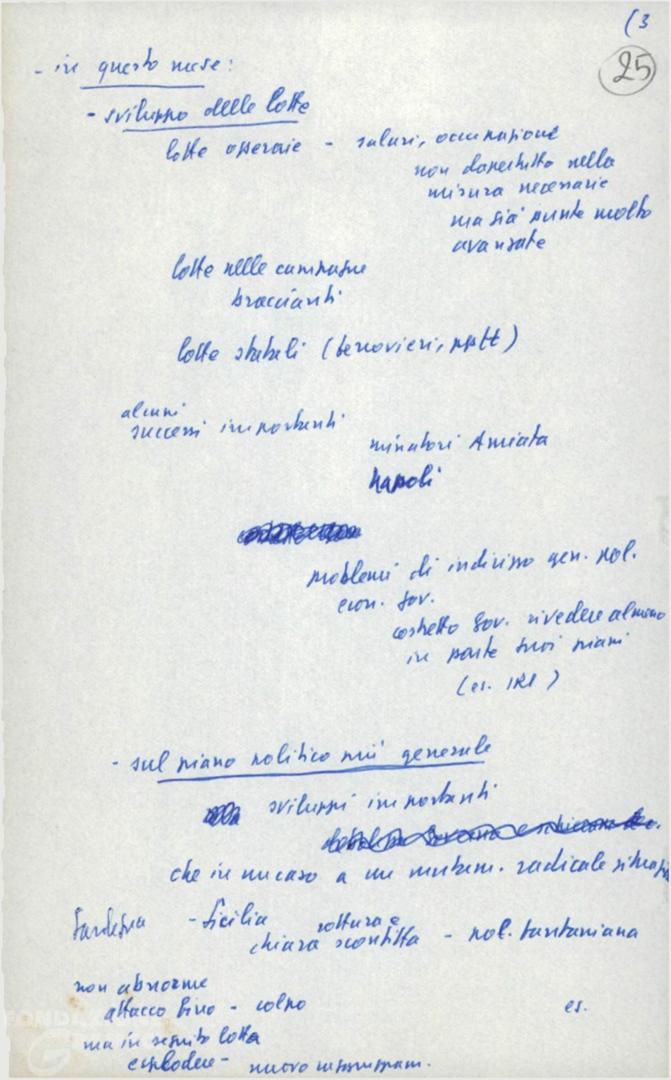 (3
25
- in questo mese:
- sviluppo delle lotte
lotte operaie - salari, occupazione
non dappertutto nella
misura necessaria
ma già punte molto
avanzate
lotte nelle campagne
braccianti
lotte statali (ferrovieri, pptt)
alcuni
successi importanti
minatori Amiata
Napoli
problemi di indirizzo gen. pol.
econ. gov.
costretto Gov. rivedere almeno
in parte suoi piani
(es. IRI)
- sul piano politico più generale
sviluppi importanti
che in un caso a un mutam. radicale
Sardegna - Sicilia rottura e
chiara sconfitta - pol. fanfaniana
non abnorme
attacco - colpo
es.
ma in seguito lotta
esplodere - nuovo